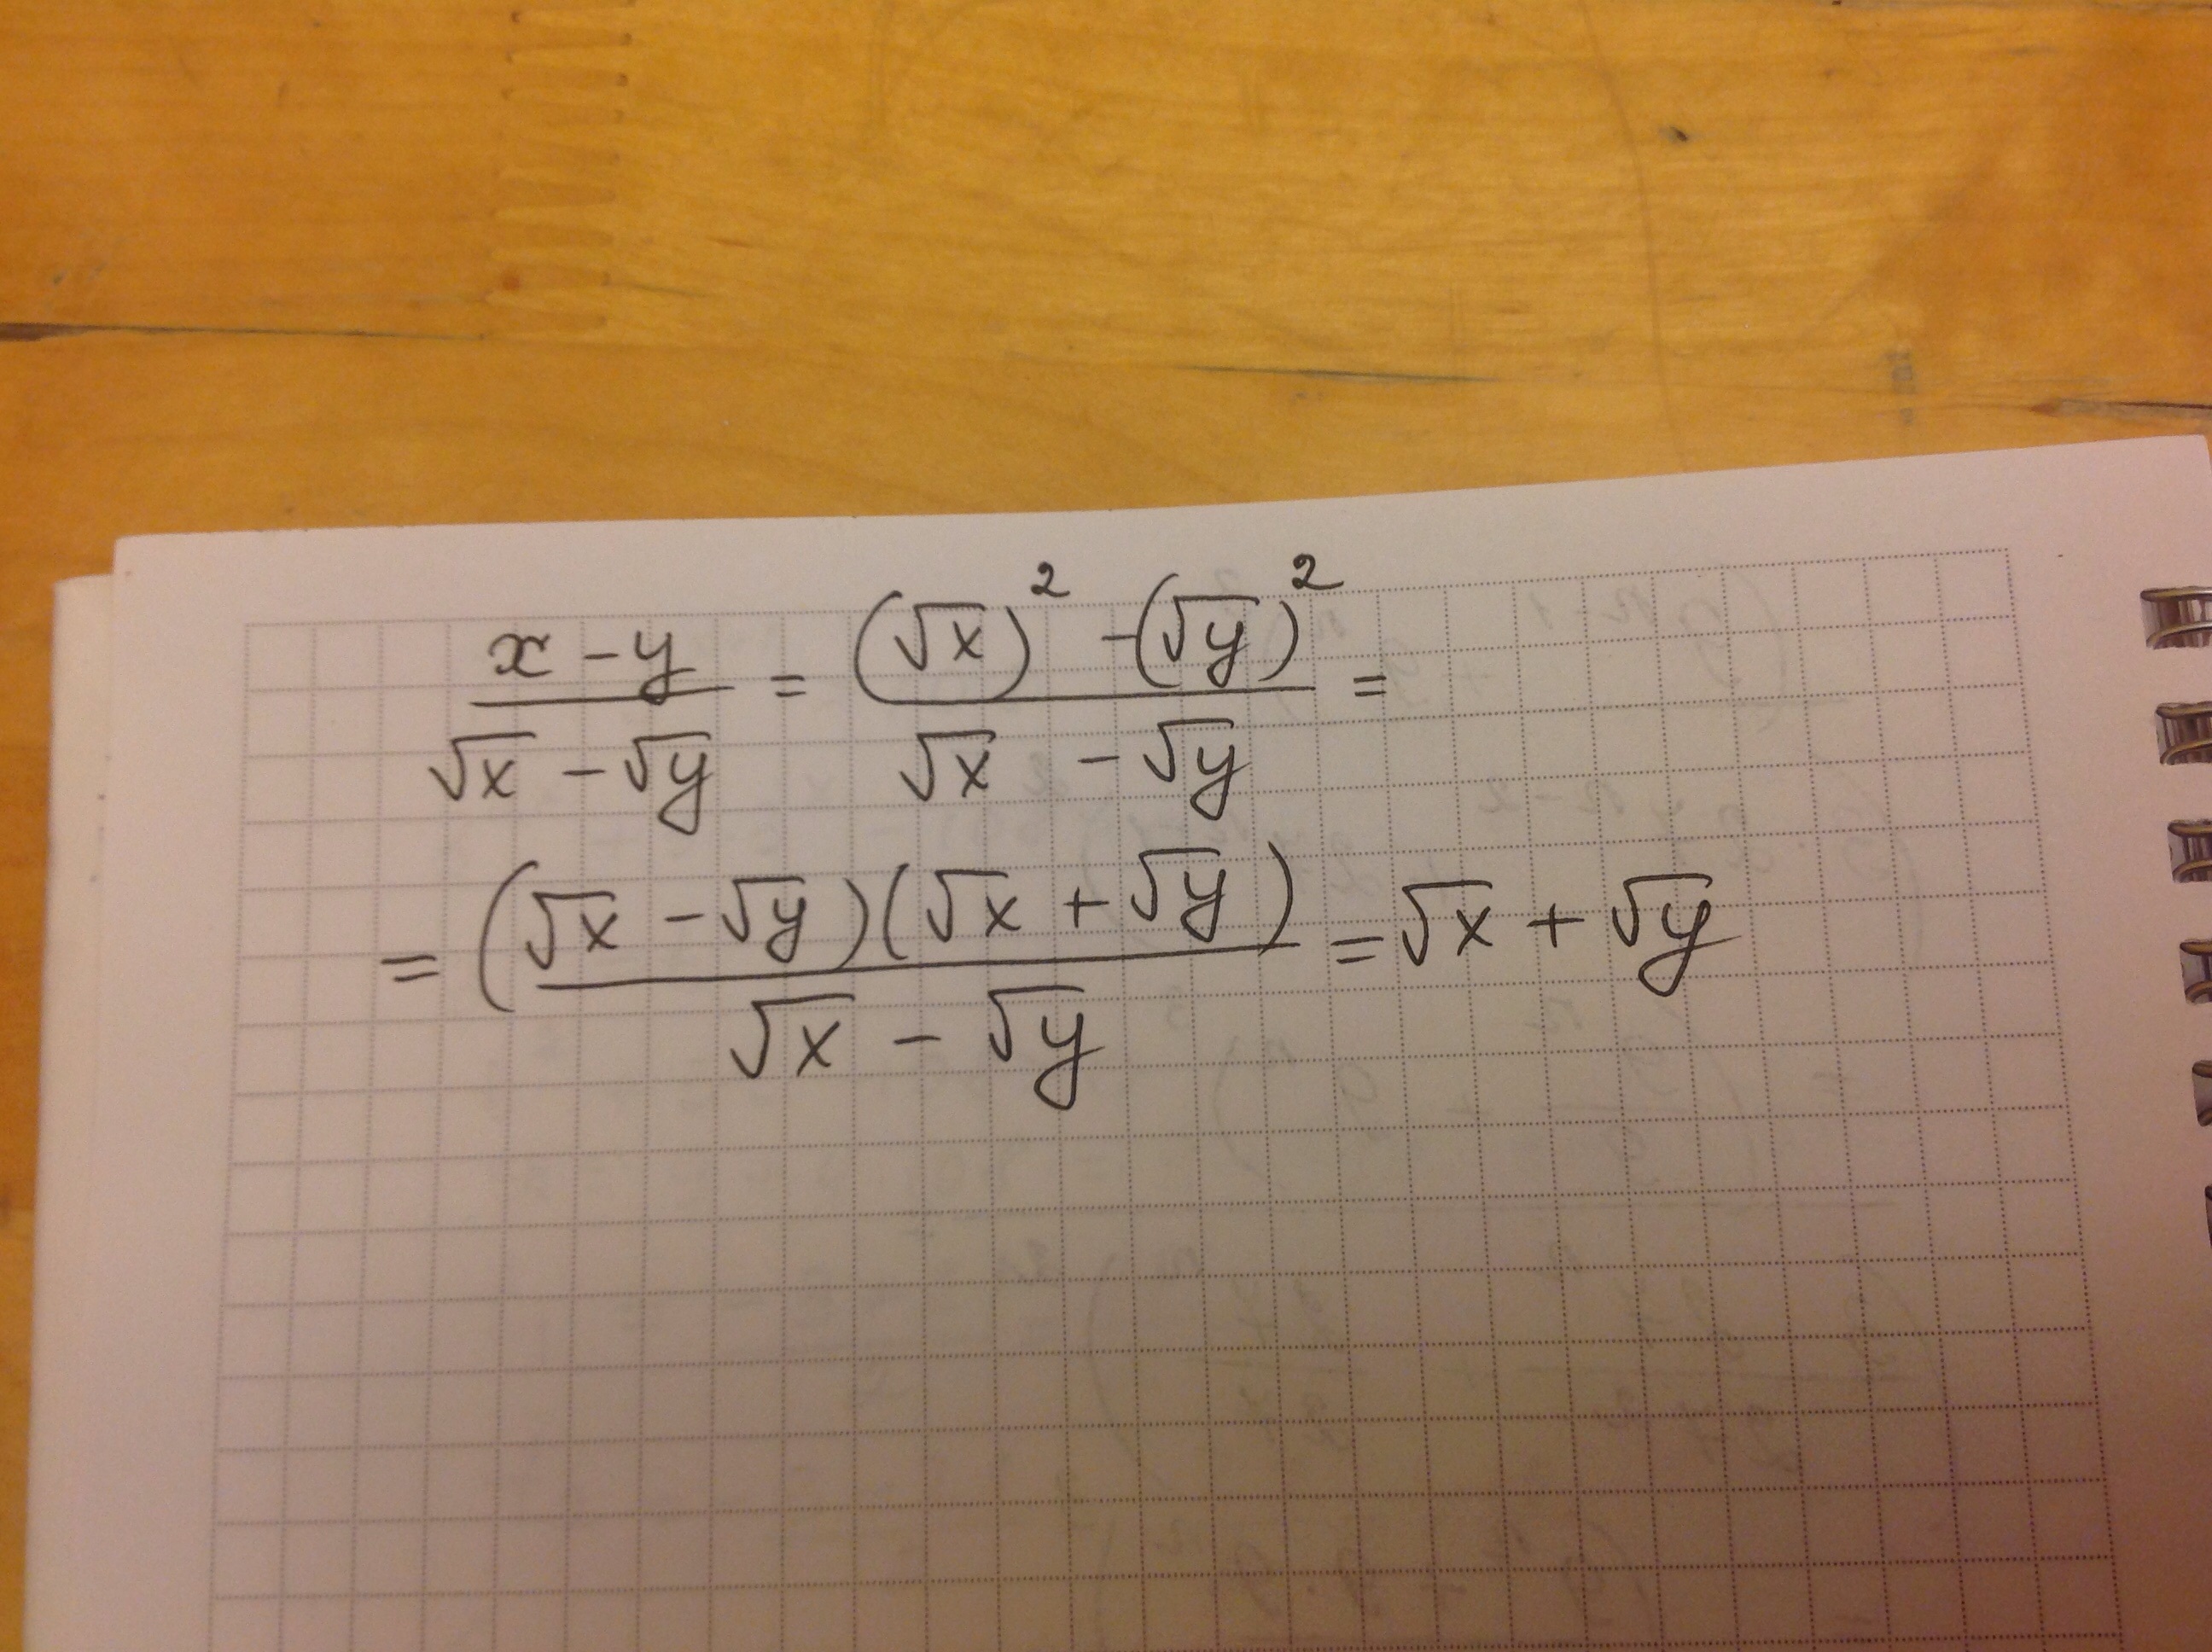 (x - y)/(√x - √y) = ((√x)² - (√y)²)/(√x - √y) =
= ((√x - √y)(√x + √y))/(√x - √y) = √x + √y